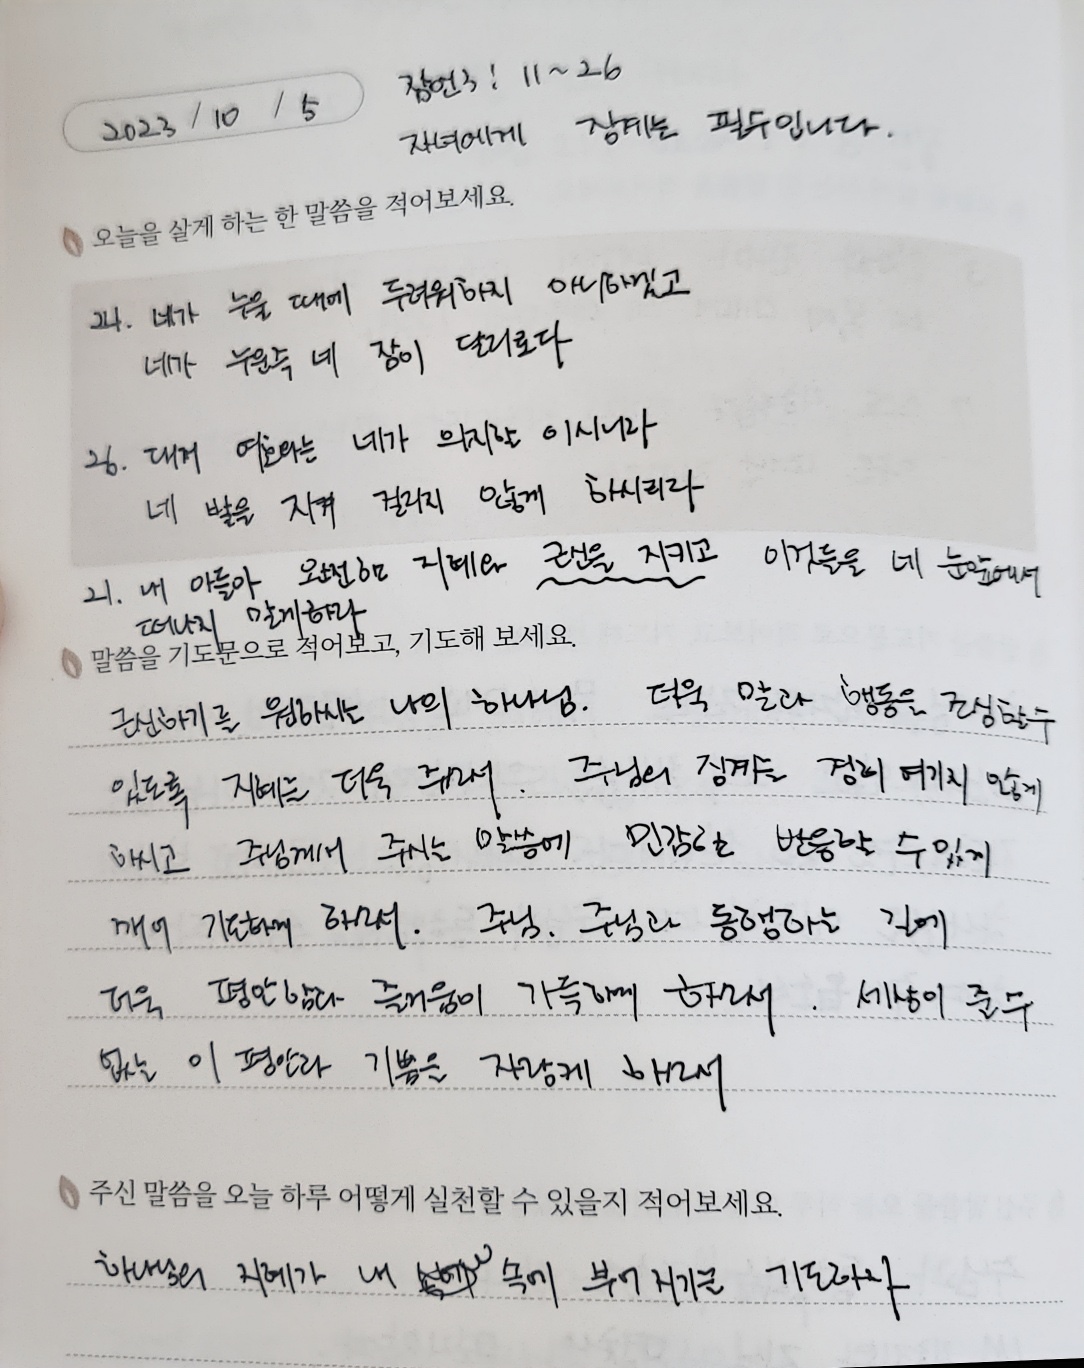 2023 / 10 / 5
잠언3! 11~26
자녀에게 징계는 필수입니다.
오늘을 살게 하는 한 말씀을 적어보세요.
24. 네가 누울 때에 두려워하지 아니하겠고
네가 누운즉 네 잠이 달리로다
26. 대저 여호와는 네가 의지할 이시니라
네 발을 지켜 걸리지 않게 하시리라
21. 내 아들아 완전한 지혜와 근신을 지키고 이것들을 네 눈앞에서
떠나지 말게하라
말씀을 기도문으로 적어보고, 기도해 보세요.
근신하기를 원하시는 나의 하나님. 더욱 말과 행동을 조심할수
있도록 지혜를 더욱 주소서. 주님의 징계를 경히 여기지 않게
하시고 주님께서 주시는 말씀에 민감히 반응할 수있게
깨어 기도하게 하소서. 주님. 주님과 동행하는 길에
더욱 평안함과 즐거움이 가득하게 하소서. 세상이 줄수
없는 이 평안과 기쁨을 자랑케 하소서
주신 말씀을 오늘 하루 어떻게 실천할 수 있을지 적어보세요.
하나님의 지혜가 내 속에 부어지기를 기도하자